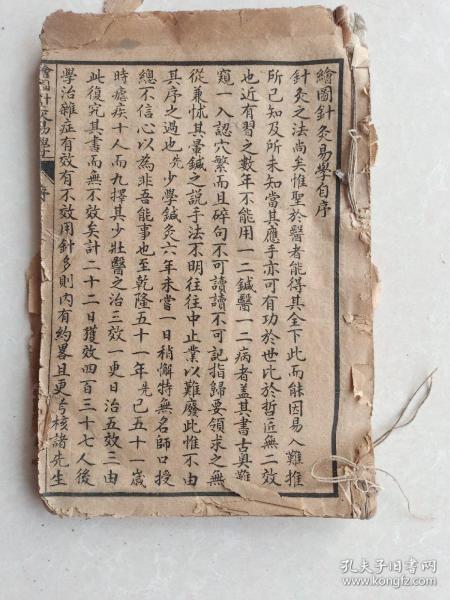 繪圖針灸易學自序
針灸之法尚矣惟聖於醫者能得其全下此而能因易入難推
所已知及所未知當其應手亦可有功於世比於哲匠無二效
也近有習之數年不能用一二鍼醫一二病者蓋其書古奥難
窺一入認穴繁而且碎句不可讀讀不可記指歸要領求之無
從兼怵其暈鍼之說手法不明往往中止業以難廢此惟不由
其序之過也先少學鍼灸六年未嘗一日稍懈特無名師口授
總不信心以為非吾能事也至乾隆五十一年先已五十一歲
時瘧疾十人而九擇其少壯醫之治三效一更日治五效三由
此復究其書而無不效矣計二十二日獲效四百三十七人後
學治雜症有效有不效用針多則内有約畧且更考核諸先生
繪圖針灸易學
序
孔夫子旧书网
www.kongfz.com